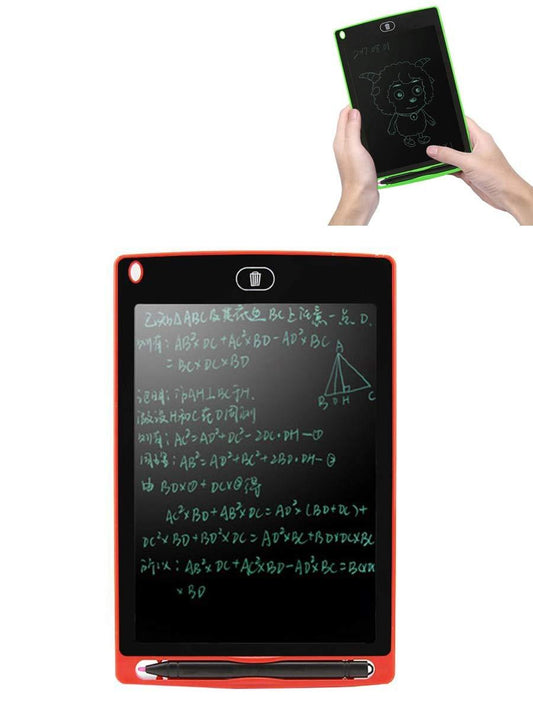 已知△ABC及其底边BC上任意一点D.
则有: AB²×DC+AC²×BD-AD²×BC
=BC×DC×BD
A
B D H C
证明: 作AH⊥BC于H.
假设H和C在D同侧
则有: AC²=AD²+DC²-2DC·DH—①
同理: AB²=AD²+BC²+2BD·DH—②
由 BD×①+DC×②得
AC²×BD+AB²×DC=AD²×(BD+DC)+
DC²×BD+BD²×DC=AD²×BC+BD×DC×BC
所以: AB²×DC+AC²×BD-AD²×BC=BC×DC
×BD